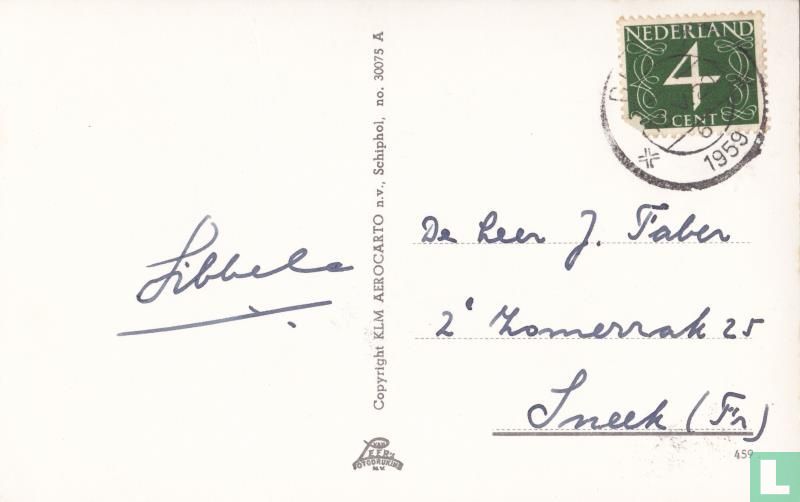 NEDERLAND
4
CENT
1959
Sibbele
Copyright KLM AEROCARTO n.v., Schiphol, no. 30075 A
De Heer J. Faber
2e Zomerrak 25
Sneek (Fr)
VAN
LEER'S
FOTODRUKIND.
N.V.
459
L